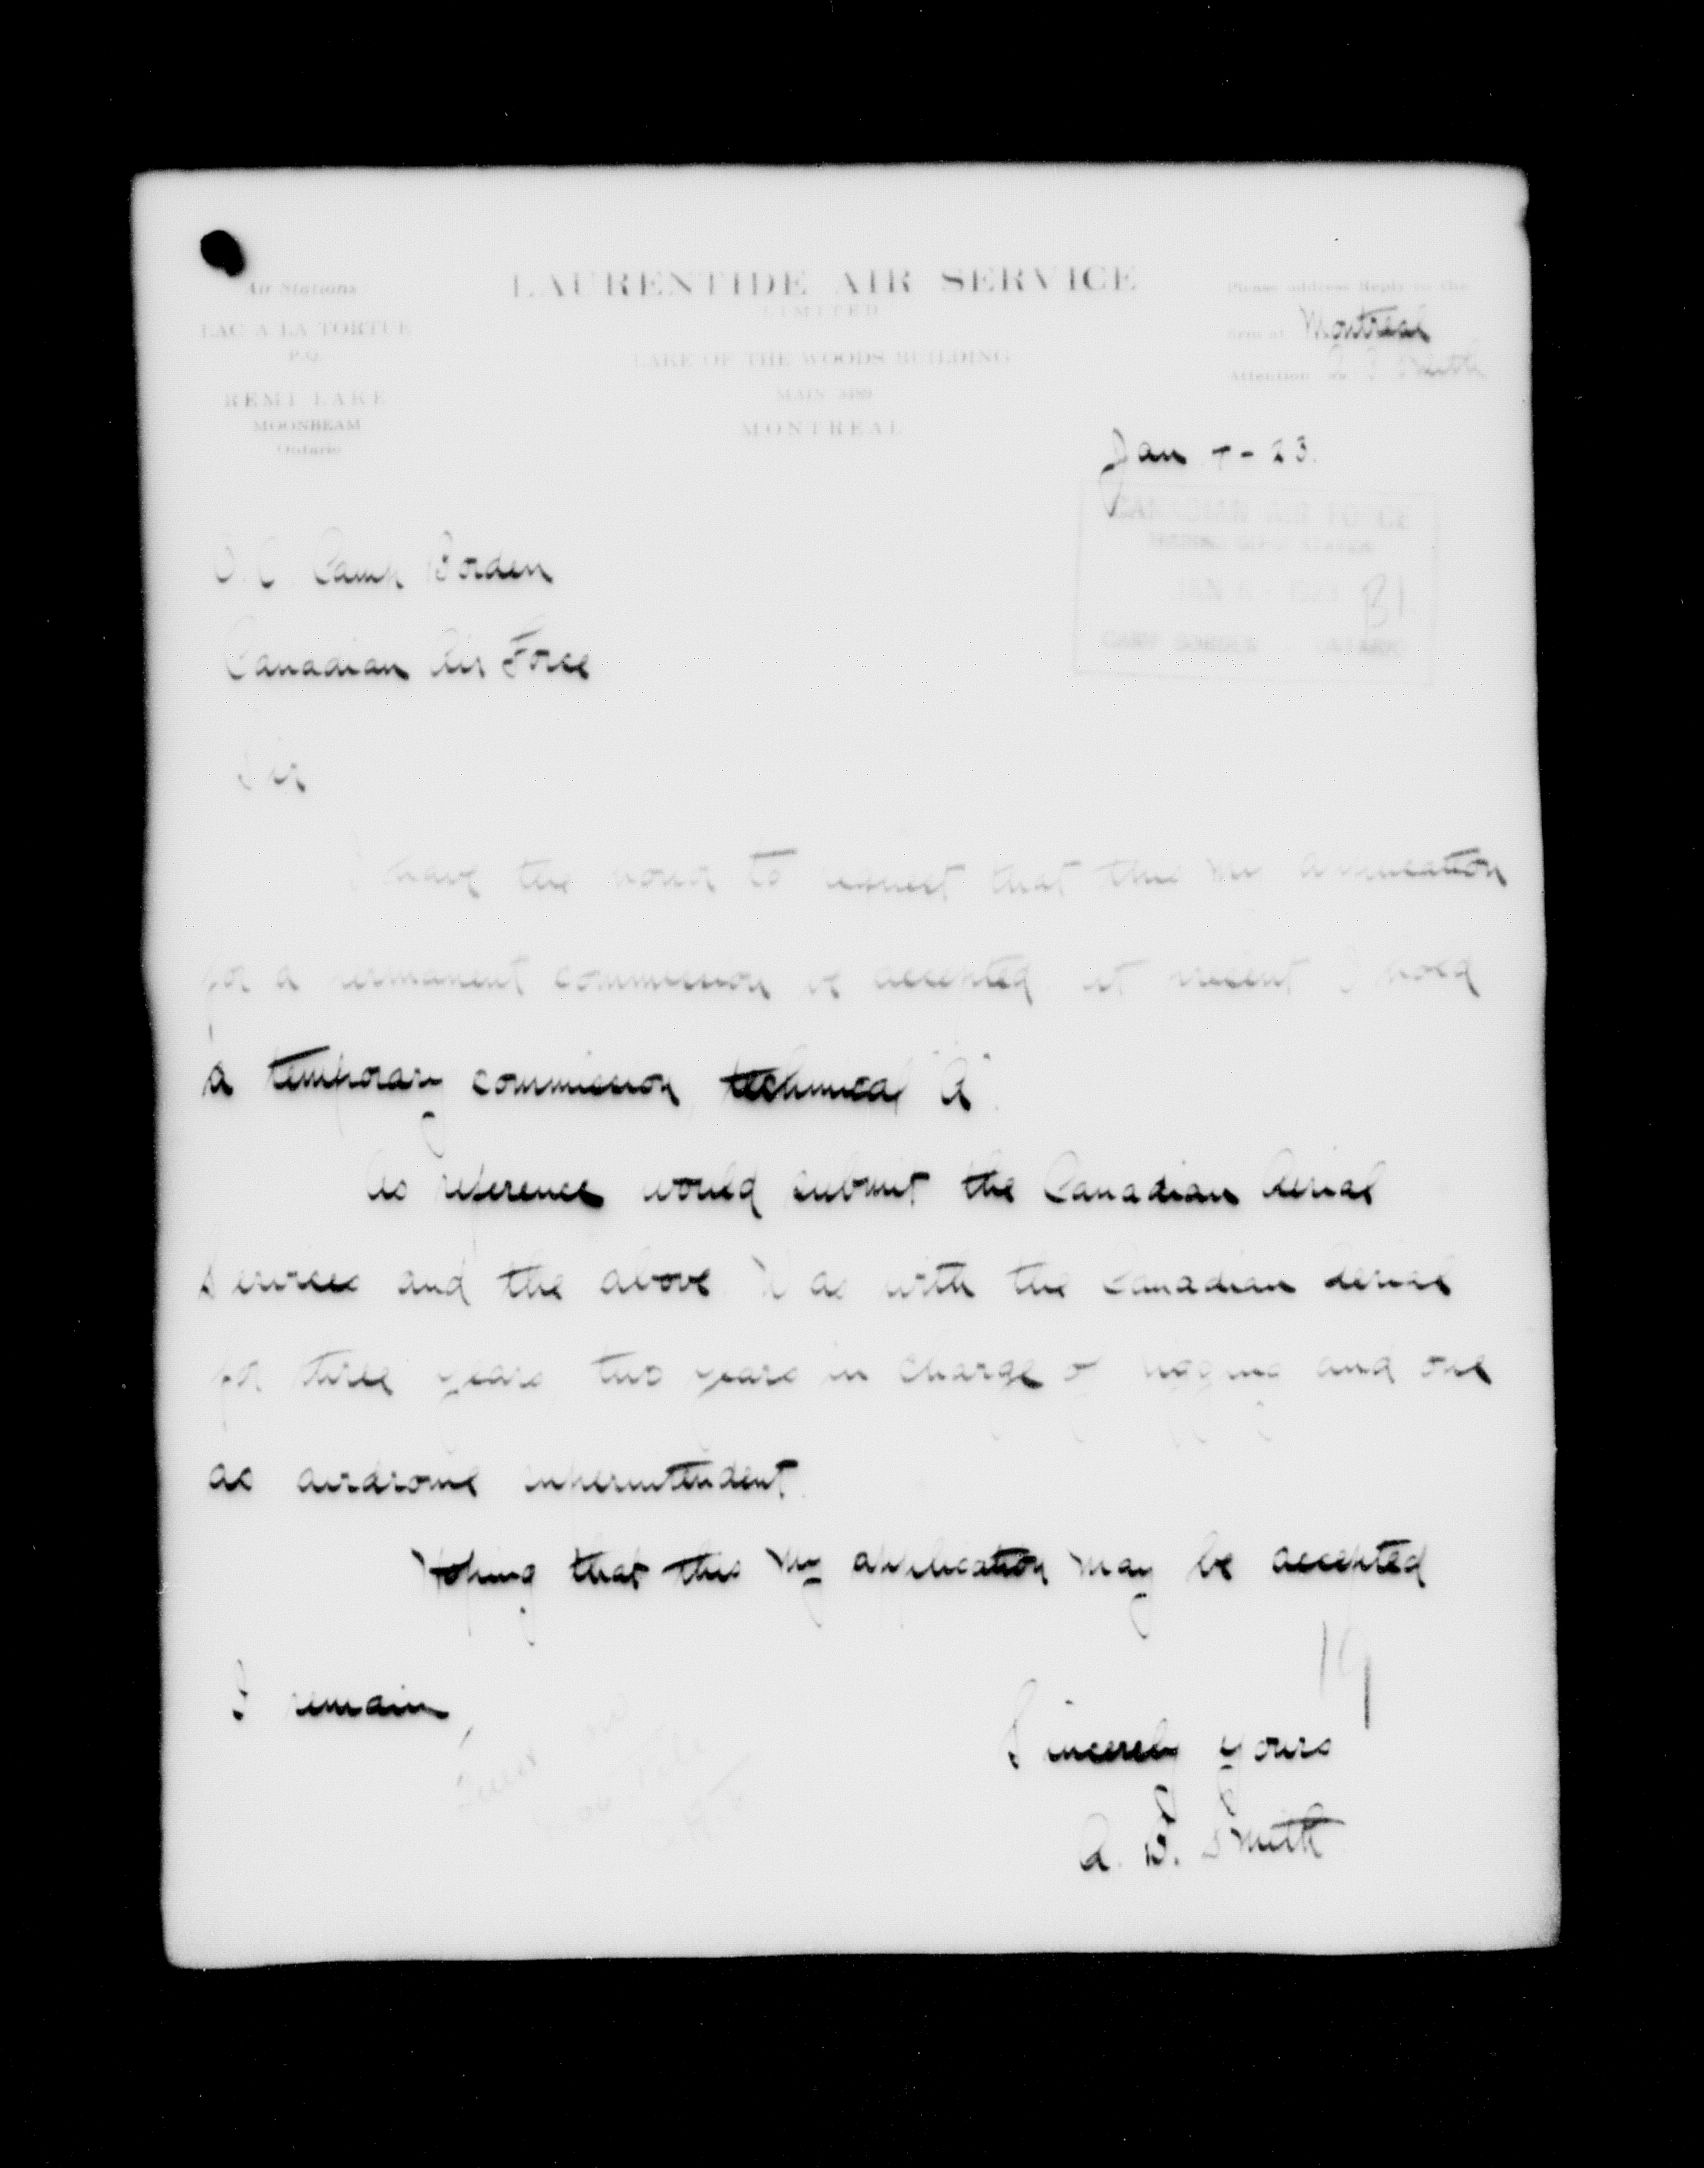 Air Stations
LAC A LA TORTUE
P.Q.
REMI LAKE
MOONBEAM
Ontario
LAURENTIDE AIR SERVICE
LIMITED
LAKE OF THE WOODS BUILDING
MAIN
MONTREAL
Please address Reply to the
firm at Montreal
Attention Smith
Jan - 23.
CANADIAN AIR FORCE
JAN 1923 B1
CAMP BORDEN ONTARIO
O.C. Camp Borden
Canadian Air Force
Sir
I have the honor to request that this my application
for a permanent commission be accepted at present I hold
a temporary commission technical "A".
As reference would submit the Canadian Aerial
Services and the above. Was with the Canadian Aerial
for three years, two years in charge of rigging and one
as airdrome superintendent.
Hoping that this my application may be accepted
I remain,
19
Sincerely yours
A. B. Smith